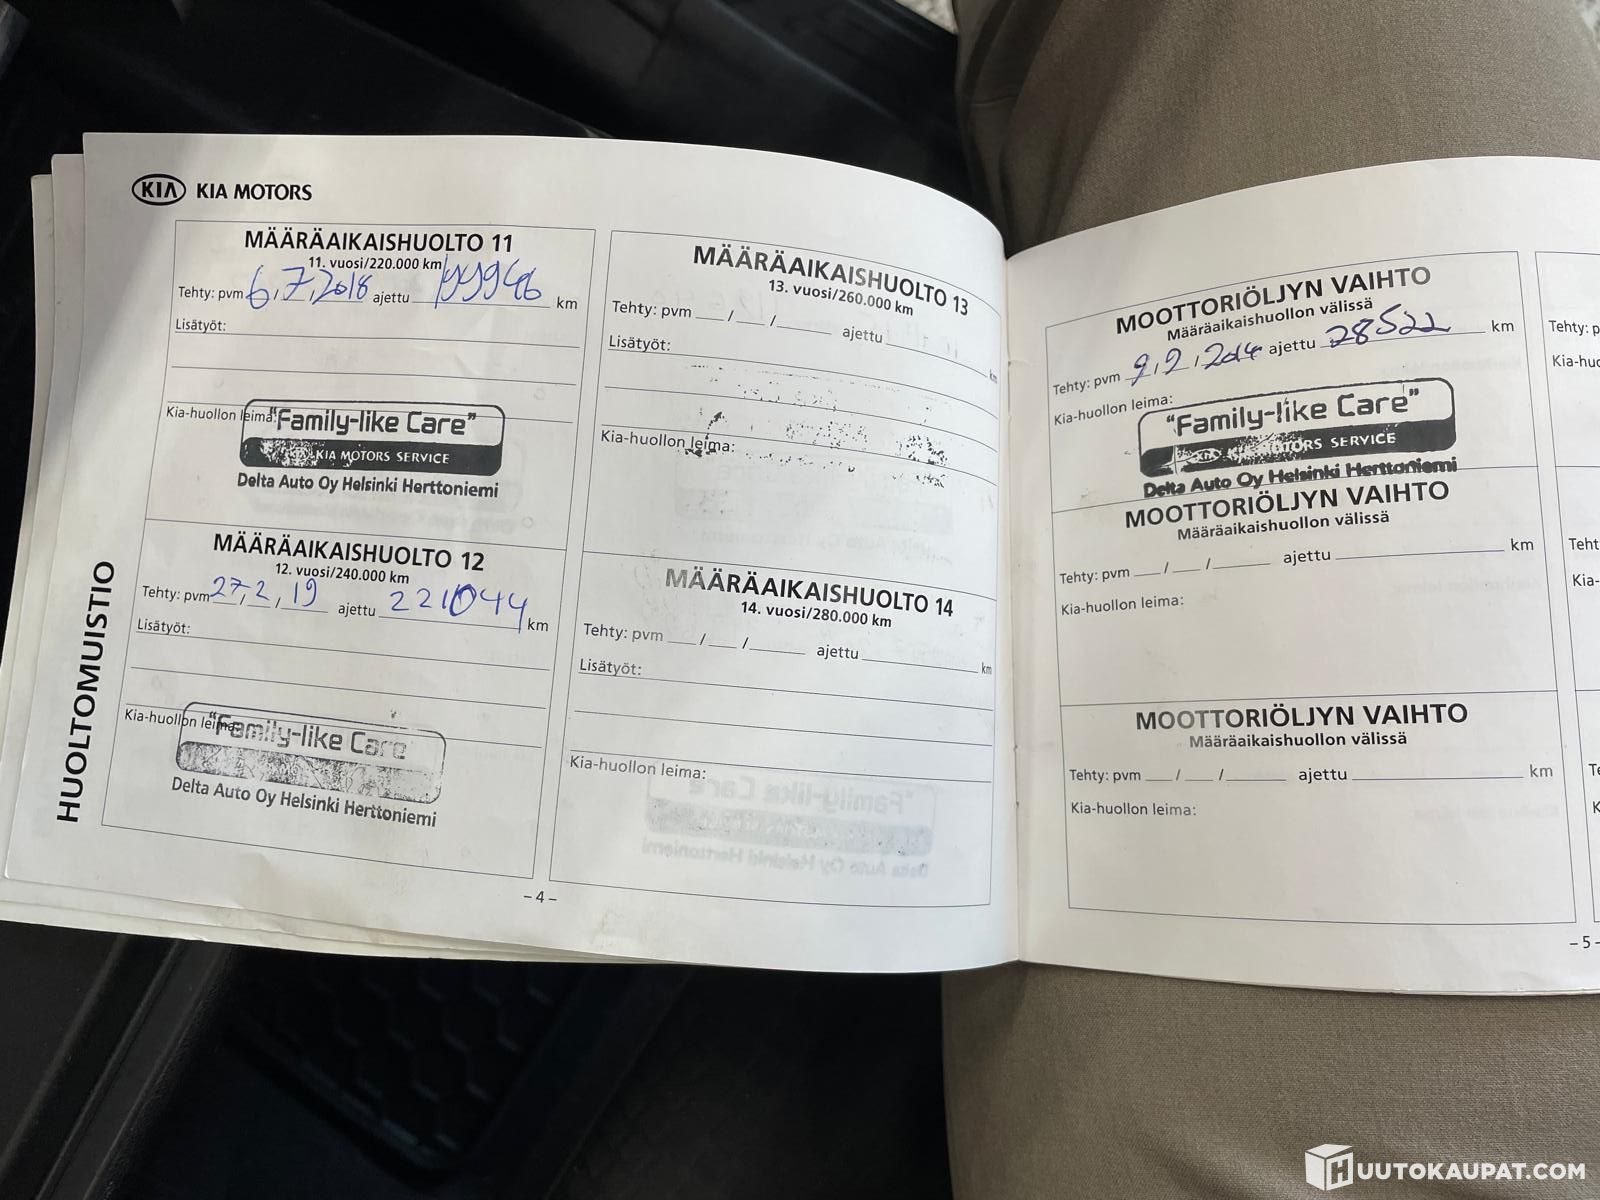 KIA KIA MOTORS
HUOLTOMUISTIO
MÄÄRÄAIKAISHUOLTO 11
11. vuosi/220.000 km
Tehty: pvm 6,7,2018 ajettu km
Lisätyöt:
Kia-huollon leima:
"Family-like Care"
KIA MOTORS SERVICE
Delta Auto Oy Helsinki Herttoniemi
MÄÄRÄAIKAISHUOLTO 12
12. vuosi/240.000 km
Tehty: pvm 27,2,19 ajettu 221044 km
Lisätyöt:
Kia-huollon leima:
"Family-like Care
Delta Auto Oy Helsinki Herttoniemi
MÄÄRÄAIKAISHUOLTO 13
13. vuosi/260.000 km
Tehty: pvm / / ajettu km
Lisätyöt:
Kia-huollon leima:
MÄÄRÄAIKAISHUOLTO 14
14. vuosi/280.000 km
Tehty: pvm / / ajettu km
Lisätyöt:
Kia-huollon leima:
– 4 –
MOOTTORIÖLJYN VAIHTO
Määräaikaishuollon välissä
Tehty: pvm 9,2,2014 ajettu 28522 km
Kia-huollon leima:
"Family-like Care"
MOTORS SERVICE
Delta Auto Oy Helsinki Herttoniemi
MOOTTORIÖLJYN VAIHTO
Määräaikaishuollon välissä
Tehty: pvm / / ajettu km
Kia-huollon leima:
MOOTTORIÖLJYN VAIHTO
Määräaikaishuollon välissä
Tehty: pvm / / ajettu km
Kia-huollon leima:
– 5 –
HUUTOKAUPAT.COM